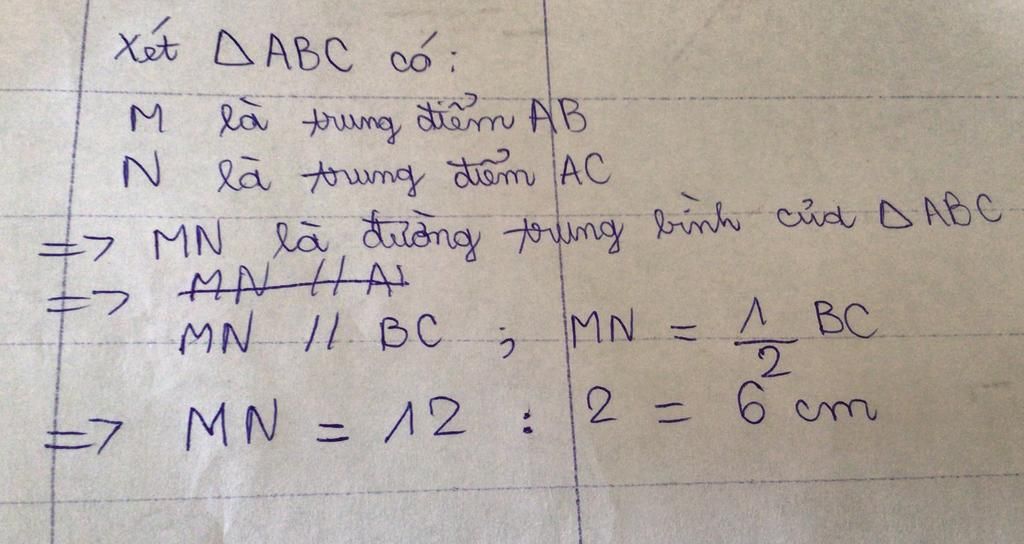 Xét △ABC có:
M là trung điểm AB
N là trung điểm AC
=> MN là đường trung bình của △ABC
=> MN // A
MN // BC ; MN = 1/2 BC
=> MN = 12 : 2 = 6 cm